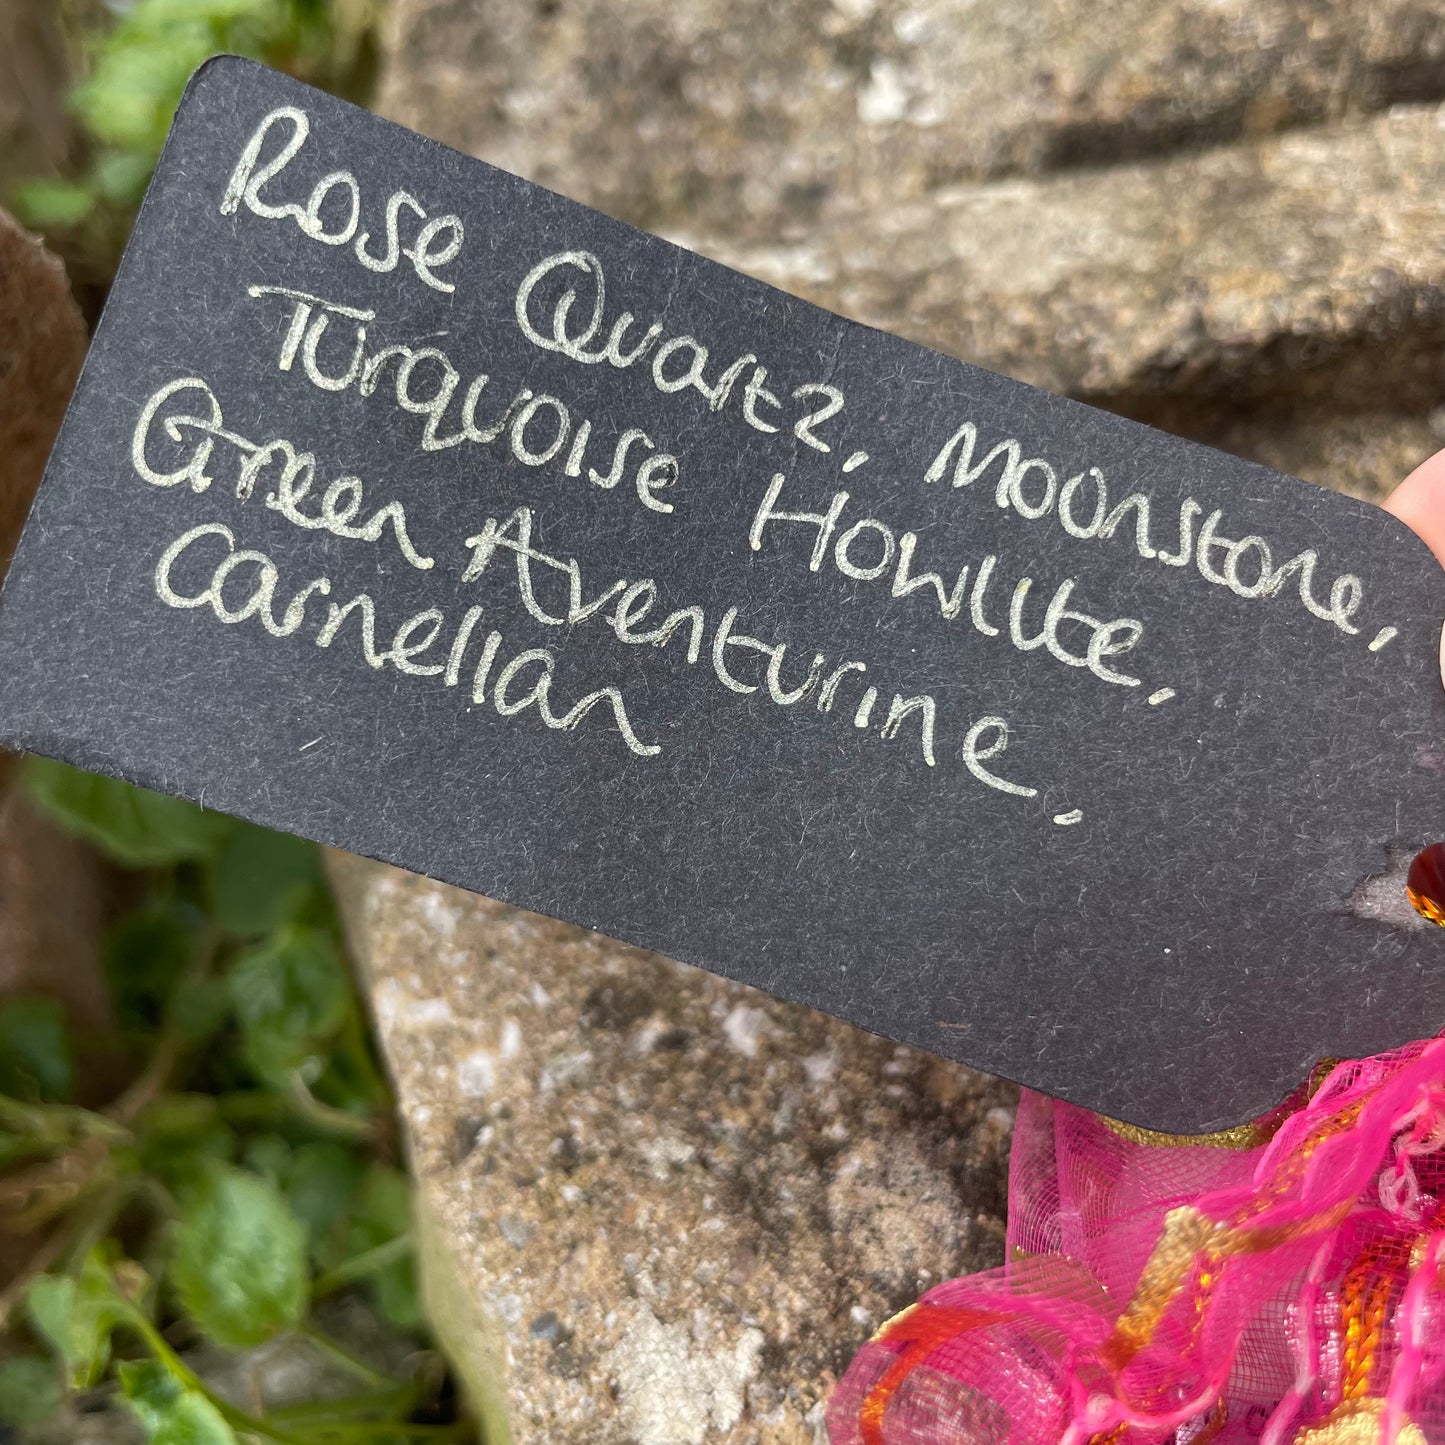 Rose Quartz, Moonstone,
Turquoise Howlite,
Green Aventurine,
Carnelian